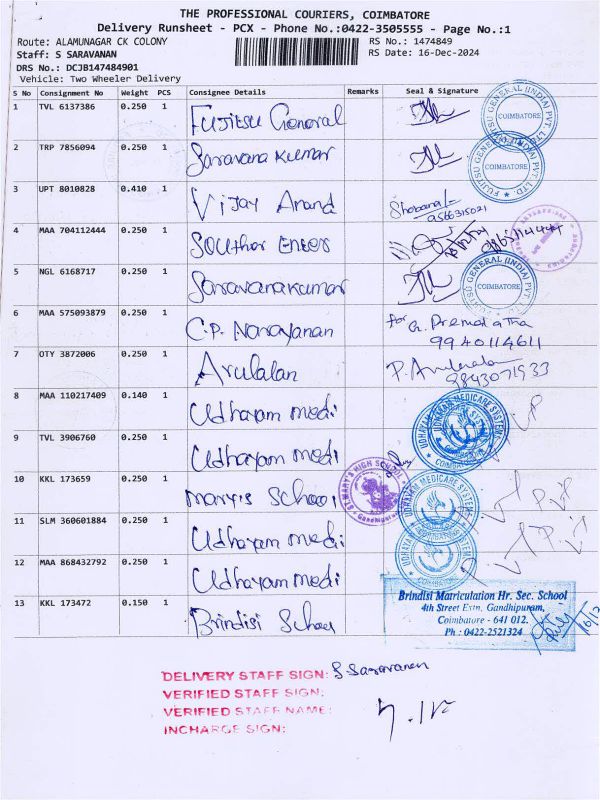 THE PROFESSIONAL COURIERS, COIMBATORE
Delivery Runsheet - PCX - Phone No.:0422-3505555 - Page No.:1
Route: ALAMUNAGAR CK COLONY RS No.: 1474849
Staff: S SARAVANAN RS Date: 16-Dec-2024
DRS No.: DCJB147484901
Vehicle: Two Wheeler Delivery
S No Consignment No Weight PCS Consignee Details Remarks Seal & Signature
1 TVL 6137386 0.250 1 Fujitsu General
FUJITSU GENERAL (INDIA) PVT. LTD. COIMBATORE
2 TRP 7856094 0.250 1 Saravana Kumar
FUJITSU GENERAL (INDIA) PVT. LTD. COIMBATORE
3 UPT 8010828 0.410 1 Vijay Anand Shobana
9566315021
4 MAA 704112444 0.250 1
5 NGL 6168717 0.250 1 Saravanakumar
GENERAL (INDIA) PVT. LTD. COIMBATORE
6 MAA 575093879 0.250 1 C.P. Narayanan for G. Premalatha
9940114611
7 OTY 3872006 0.250 1 Arulalan P. Arulalan
9843071933
8 MAA 110217409 0.140 1 Udhayam medi
UDHAYAM MEDICARE SYSTEM COIMBATORE
9 TVL 3906760 0.250 1 Udhayam medi
10 KKL 173659 0.250 1 Mary's School
ST. MARY'S HIGH SCHOOL
11 SLM 360601884 0.250 1 Udhayam medi
UDHAYAM MEDICARE SYSTEM
12 MAA 868432792 0.250 1 Udhayam medi
13 KKL 173472 0.150 1 Brindisi School
Brindisi Matriculation Hr. Sec. School
4th Street Extn. Gandhipuram,
Coimbatore - 641 012.
Ph : 0422-2521324
DELIVERY STAFF SIGN: S Saravanan
VERIFIED STAFF SIGN:
VERIFIED STAFF NAME:
INCHARGE SIGN: